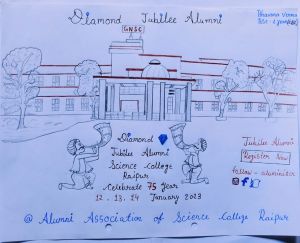 Diamond Jubilee Alumni
GNSC
Bhavana Verma
Diamond
Jubilee Alumni
Science College
Raipur
Celebrate 75 Year
12.13.14 January 2023
Jubilee Alumni
Register Now
follow - alumini
@ Alumni Association of Science College Raipur